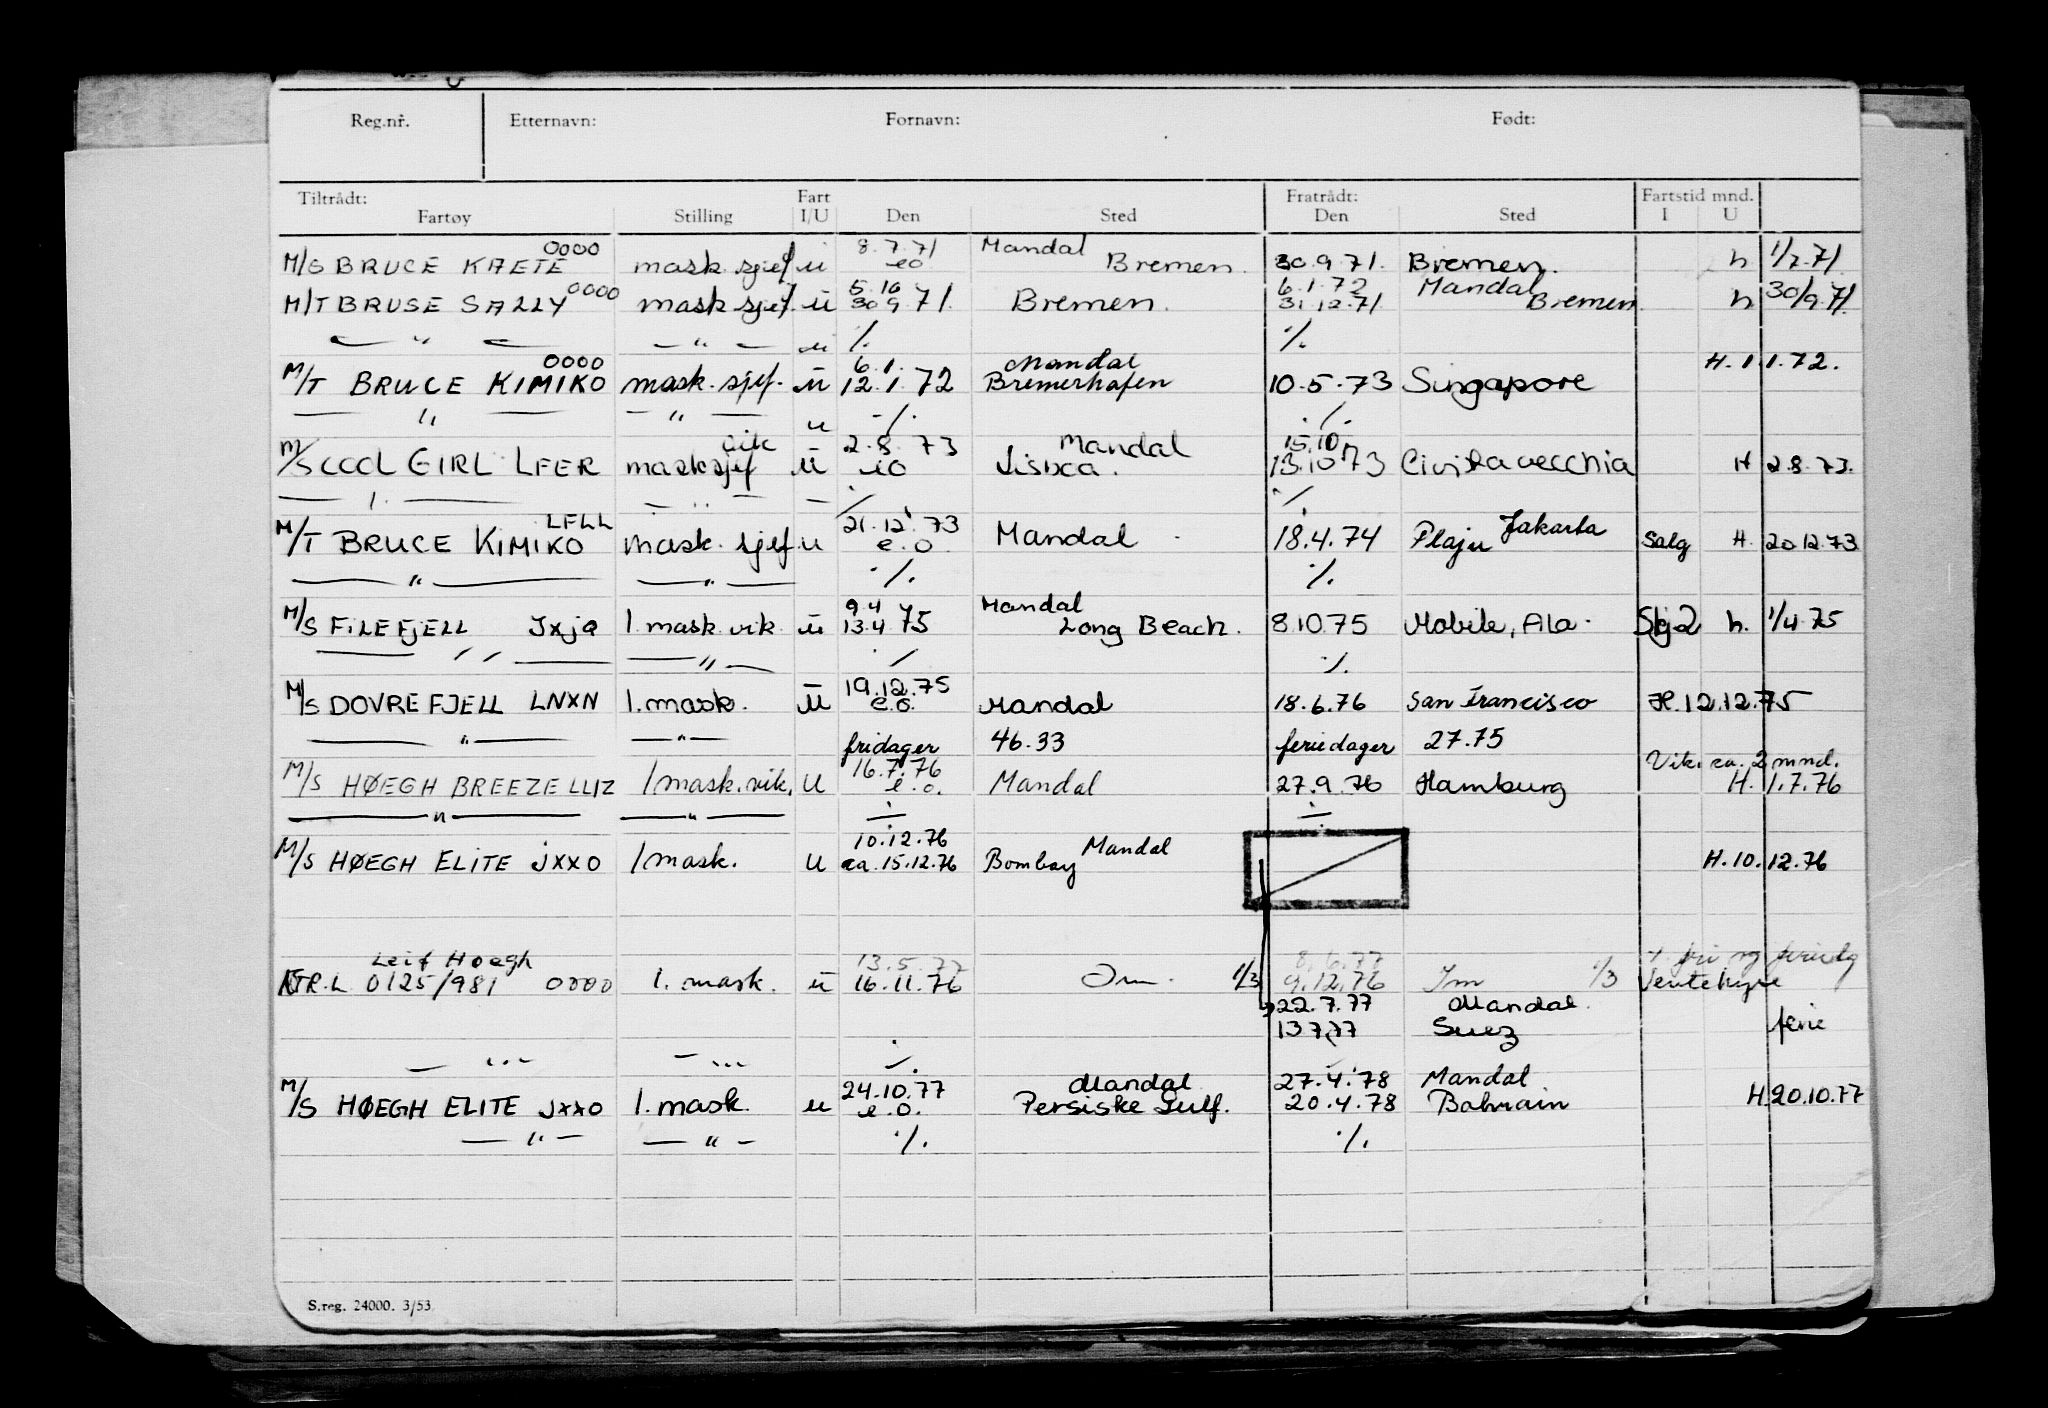 Reg.nr. Etternavn: Fornavn: Født:
Tiltrådt: Fart Fratrådt: Fartstid mnd.
Fartøy Stilling I/U Den Sted Den Sted I U
0000 8.7.71 Mandal
M/S BRUCE KAETE mask.sjef ü eo Bremen. 30.9.71. Bremen. h 1/7.71.
0000 5.10 6.1.72 Mandal
M/T BRUSE SALLY mask sjef. ü 30 9 71. Bremen. 31.12.71. Bremen. h 30/9.71.
— " — — " — u ./. ./.
0000 6.1. Mandal H. 1.1.72.
M/T BRUCE KIMIKO mask. sjef. ü 12.1.72 Bremerhafen 10.5.73 Singapore
— " — — " — u ./. ./.
vik 2.8.73 Mandal 15.10
M/S COOL GIRL LFER masksjef ü eo 13.10 73 Civitavecchia H 2.8.73.
LFLL 21.12.73 Jakarta
M/T BRUCE KIMIKO mask. sjef. u e.o. Mandal 18.4.74 Plaju Salg H. 20.12.73
— " — — " — ./. ./.
9.4 Mandal
M/S FILEFJELL JXJQ 1.mask.vik ü 13.4.75 Long Beach. 8.10.75 Mobile, Ala. h. 1/4.75
— " — — " — ./. ./.
19.12.75
M/S DOVREFJELL LNXN 1.mask. ü e.o. Mandal 18.6.76 San Francisco H.12.12.75
— " — — " — fridager 46.33 feriedager 27.75
16.7.76 Vik. ca. 2 mnd.
M/S HØEGH BREEZE LLIZ 1mask.vik. U e.o. Mandal 27.9.76 Hamburg H. 1.7.76
— " — — " — ./. ./.
10.12.76 Mandal
M/S HØEGH ELITE JXXO 1mask. U ca.15.12.76 Bombay H.10.12.76
Leif Hoegh 13.5.77 8.6.77
KTR.L 0125/981 0000 1. mask. ü 16.11.76 1/3 9.12.76 1/3 Ventehyre
22.7.77 Mandal.
13 7 77 Suez ferie
24.10.77 Mandal 27.4.78 Mandal
M/S HØEGH ELITE JXXO 1.mask. u e.o. Persiske Gulf. 20.4.78 Bahrain H.20.10.77
— " — — " — ./. ./.
S.reg. 24000. 3/53.